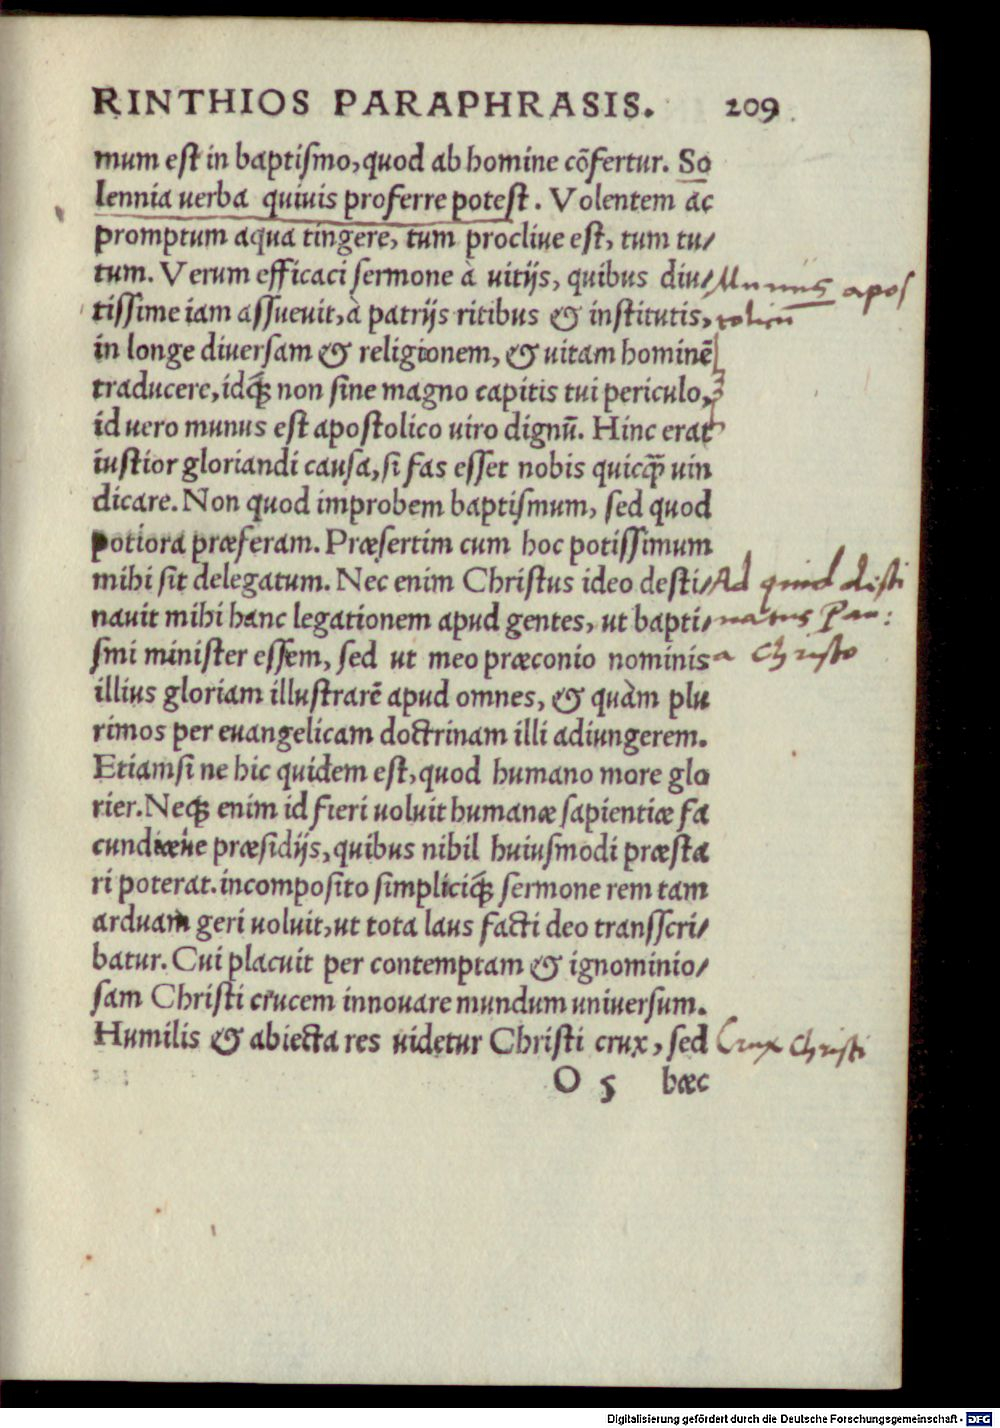 RINTHIOS PARAPHRASIS. 209
mum est in baptismo, quod ab homine cōfertur. So
lennia uerba quiuis proferre potest. Volentem ac
promptum aqua tingere, tum procliue est, tum tu/
tum. Verum efficaci sermone à uitijs, quibus diu/
Munus apos
tissime iam assueuit, à patrijs ritibus & institutis,
tolicū
in longe diuersam & religionem, & uitam hominē
traducere, idq́ꝫ non sine magno capitis tui periculo,
id uero munus est apostolico uiro dignū. Hinc erat
iustior gloriandi causa, si fas esset nobis quicq̄ uin
dicare. Non quod improbem baptismum, sed quod
potiora præferam. Præsertim cum hoc potissimum
mihi sit delegatum. Nec enim Christus ideo desti/
Ad quid desti
nauit mihi hanc legationem apud gentes, ut bapti/
natus Pau:
smi minister essem, sed ut meo præconio nominis
a Christo
illius gloriam illustrarē apud omnes, & quàm plu
rimos per euangelicam doctrinam illi adiungerem.
Etiamsi ne hic quidem est, quod humano more glo
rier. Neqꝫ enim id fieri uoluit humanæ sapientiæ fa
cundiæue præsidijs, quibus nihil huiusmodi præsta
ri poterat. incomposito simpliciq́ꝫ sermone rem tam
arduam geri uoluit, ut tota laus facti deo transscri/
batur. Cui placuit per contemptam & ignominio/
sam Christi crucem innouare mundum uniuersum.
Humilis & abiecta res uidetur Christi crux, sed
Crux Christi
O 5 hæc
Digitalisierung gefördert durch die Deutsche Forschungsgemeinschaft - DFG